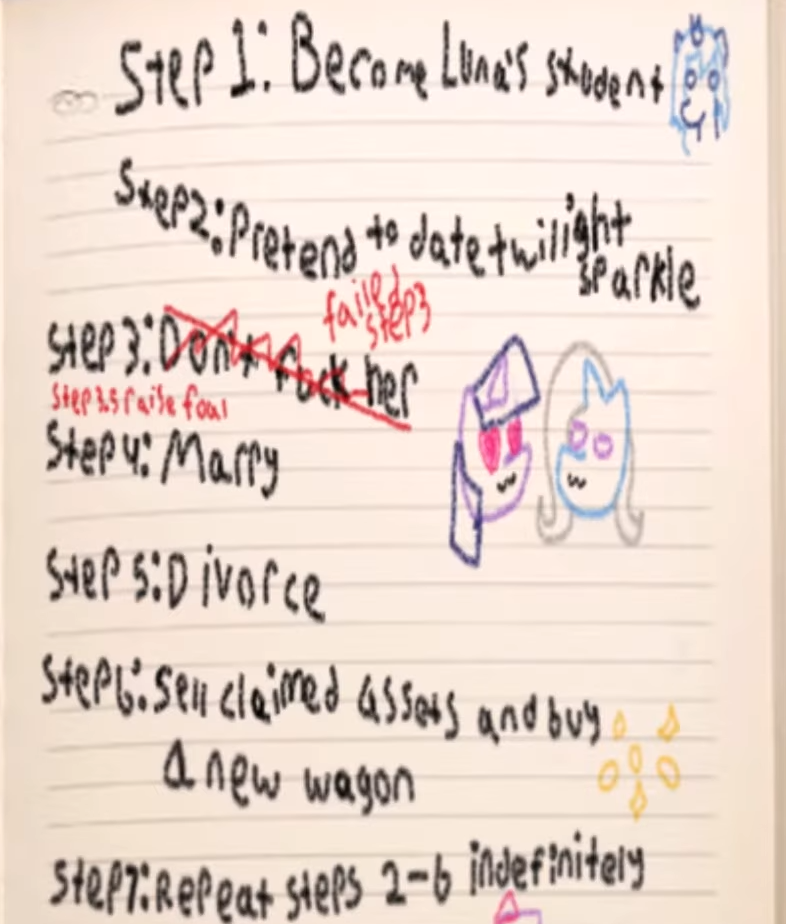 Step 1: Become Luna's student
Step2: Pretend to date twilight
sparkle
failed
step3
Step 3: Don't fuck her
Step 3.5 raise foal
Step 4: Marry
Step 5: Divorce
Step 6: Sell claimed assets and buy
a new wagon
Step 7: Repeat steps 2-6 indefinitely